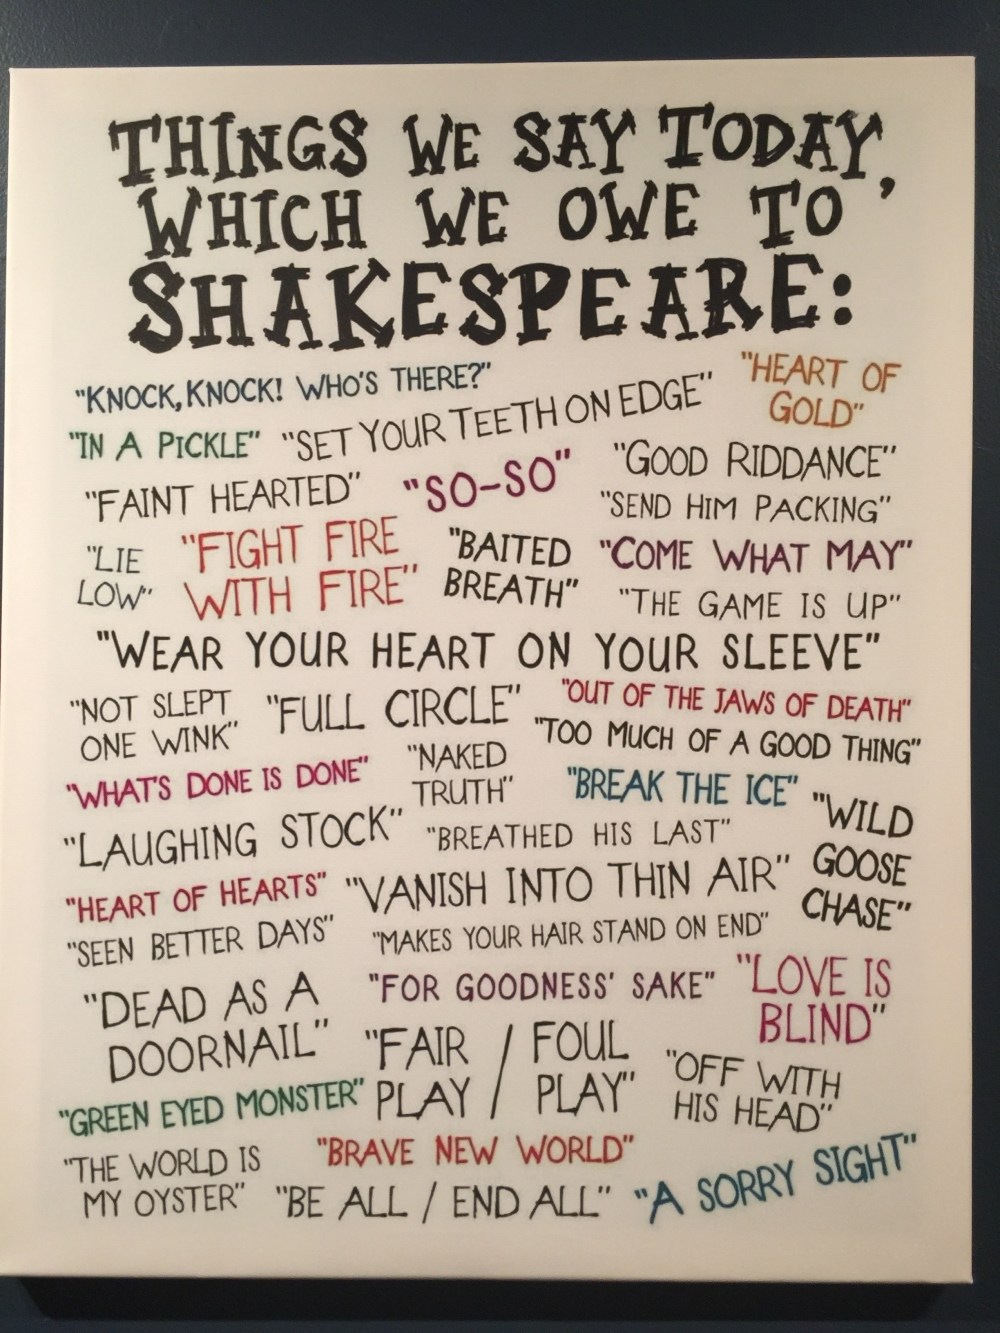 THINGS WE SAY TODAY,
WHICH WE OWE TO
SHAKESPEARE:
"KNOCK, KNOCK! WHO'S THERE?"
"HEART OF
GOLD"
"IN A PICKLE" "SET YOUR TEETH ON EDGE"
"FAINT HEARTED" "SO-SO" "GOOD RIDDANCE"
"SEND HIM PACKING"
"LIE
LOW"
"FIGHT FIRE
WITH FIRE"
"BAITED
BREATH"
"COME WHAT MAY"
"THE GAME IS UP"
"WEAR YOUR HEART ON YOUR SLEEVE"
"NOT SLEPT
ONE WINK"
"FULL CIRCLE"
"OUT OF THE JAWS OF DEATH"
"TOO MUCH OF A GOOD THING"
"WHAT'S DONE IS DONE"
"NAKED
TRUTH"
"BREAK THE ICE"
"WILD
GOOSE
CHASE"
"LAUGHING STOCK" "BREATHED HIS LAST"
"HEART OF HEARTS" "VANISH INTO THIN AIR"
"SEEN BETTER DAYS" "MAKES YOUR HAIR STAND ON END"
"DEAD AS A
DOORNAIL"
"FOR GOODNESS' SAKE"
"LOVE IS
BLIND"
"FAIR / FOUL
PLAY / PLAY"
"OFF WITH
HIS HEAD"
"GREEN EYED MONSTER"
"THE WORLD IS
MY OYSTER"
"BRAVE NEW WORLD"
"BE ALL / END ALL" "A SORRY SIGHT"